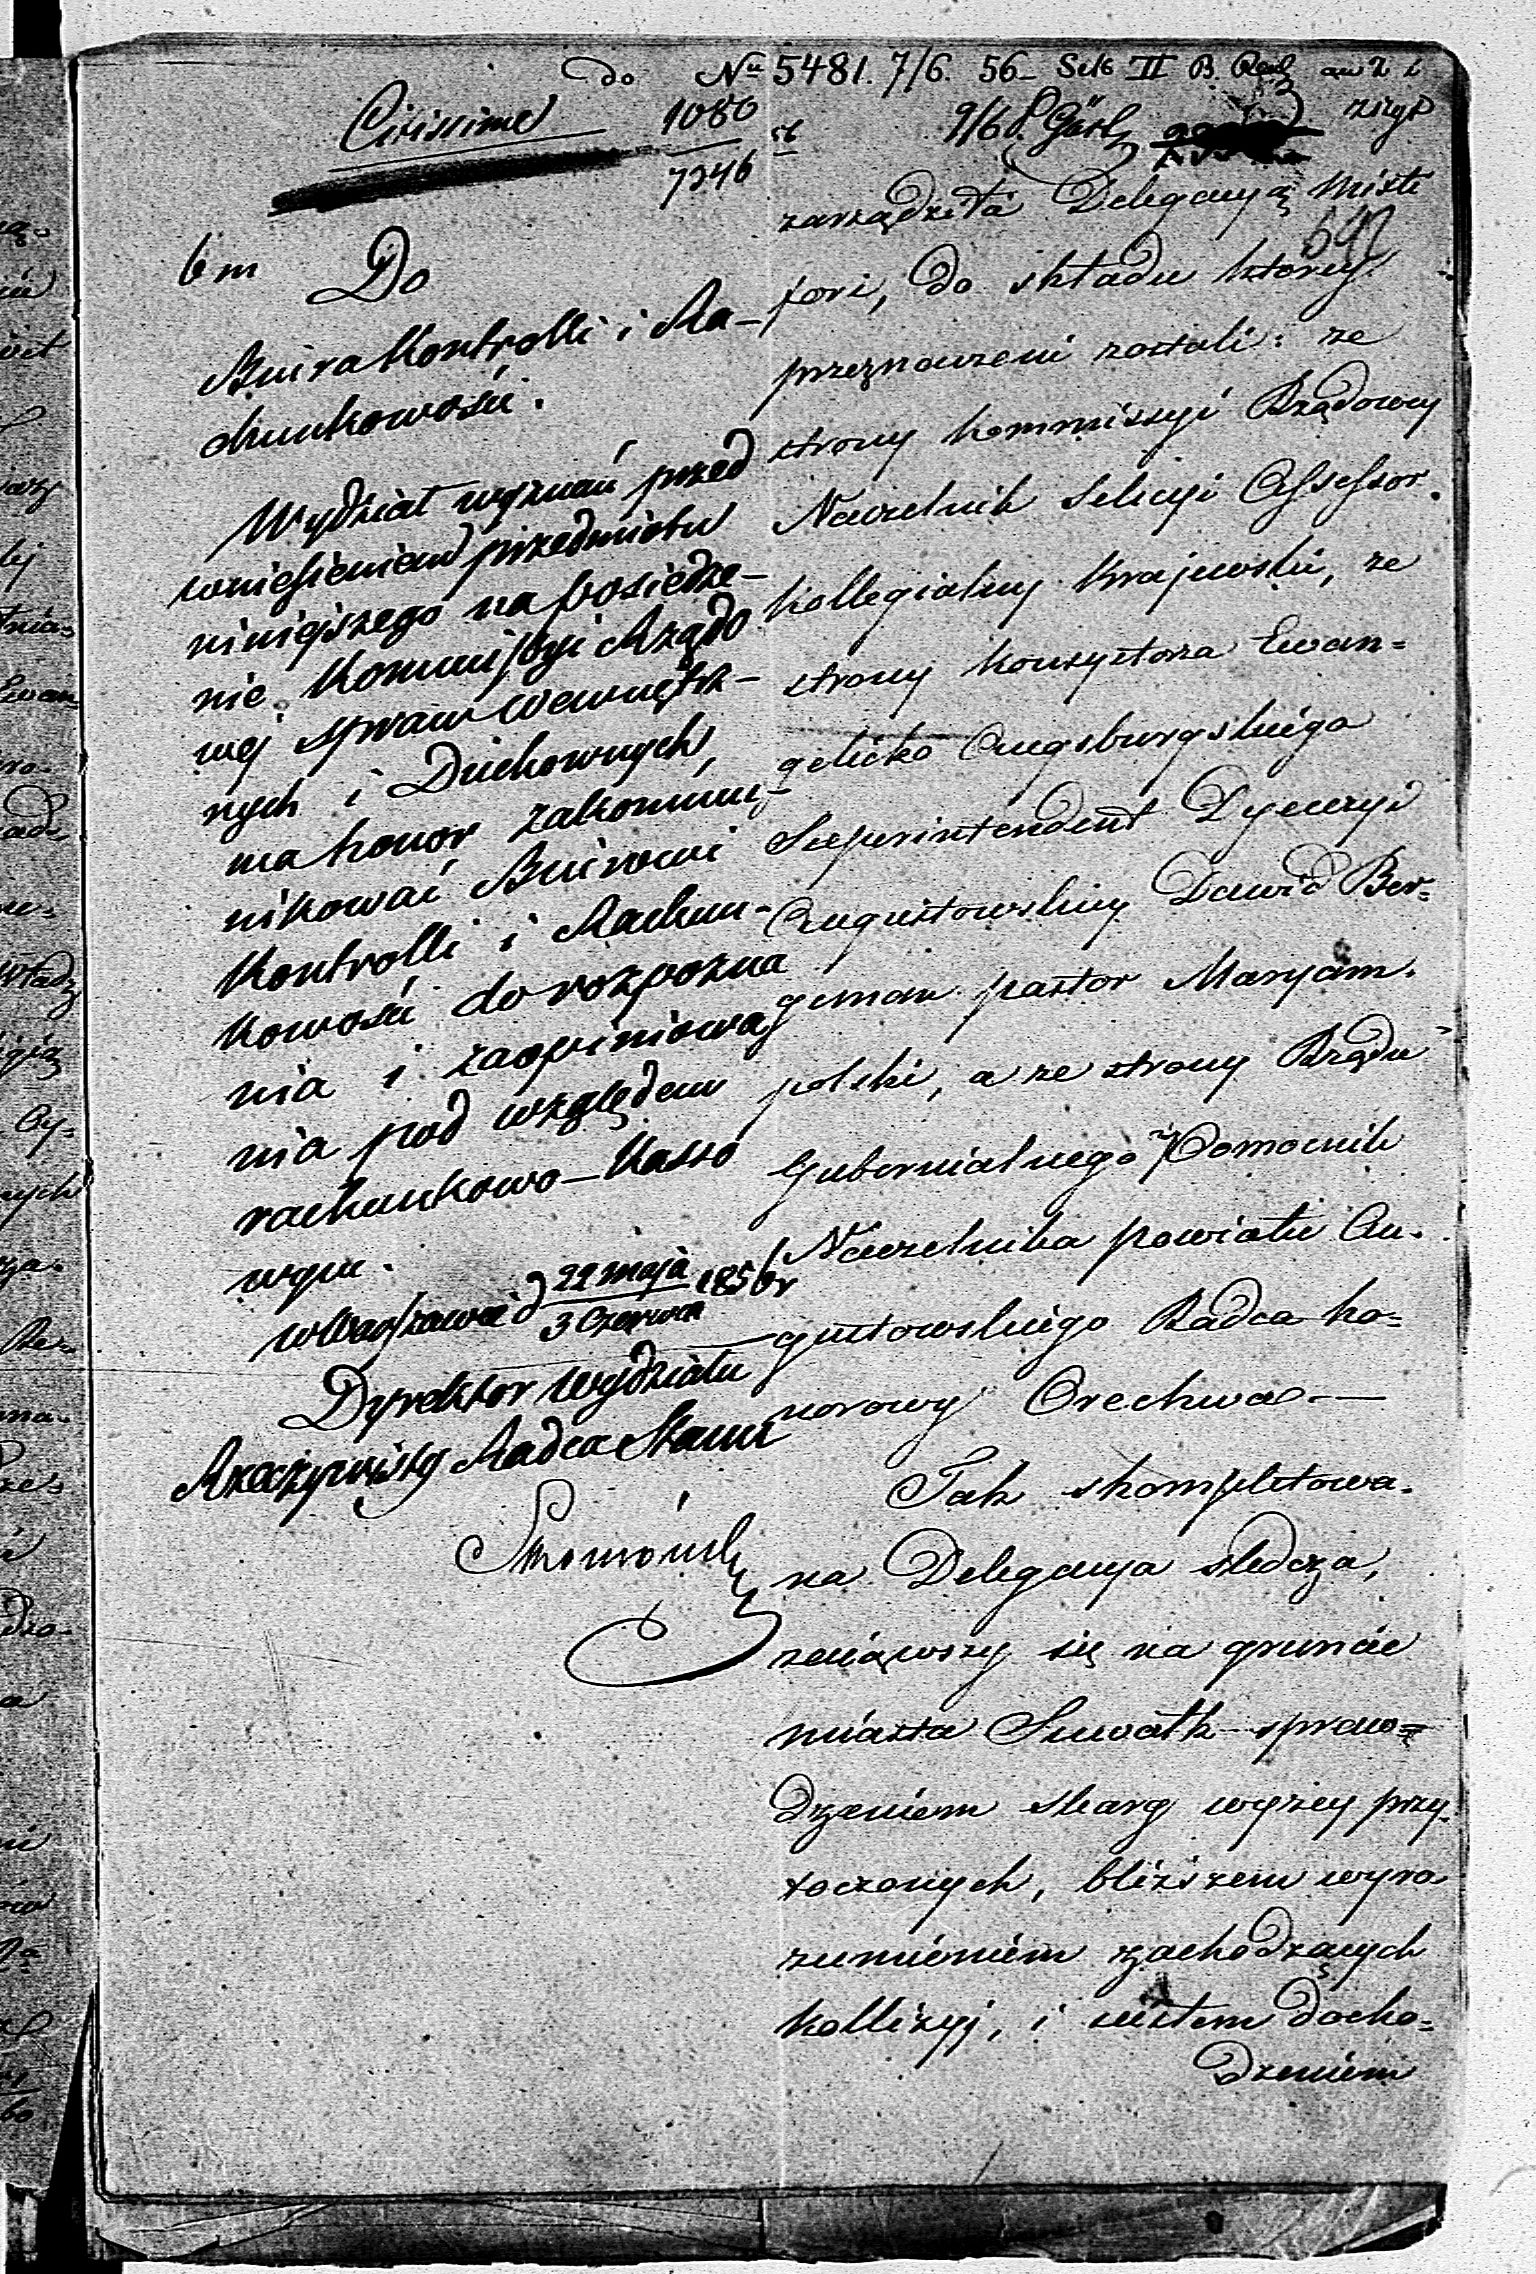 do Nr 5481. 7/6. 56 Sek II B.
Citissime
1080
7246
9/6
6 m
692
Do
Biura Kontrolli i Ra-
chunkowości.
Wydział wyznań przed
wniesieniem przedmiotu
niniejszego na posiedze-
nie Kommissyi Rządo
wej Spraw Wewnętrz-
nych i Duchownych,
ma honor zakommu-
nikować Biurowi
Kontrolli i Rachun-
kowości do rozpozna
nia i zaopiniowa
nia pod względem
rachunkowo-Kasso
wym.
w Warszawie d 22 maja 1856 r
3 Czerwca
Dyrektor Wydziału
Rzeczywisty Radca Stanu
zarządziła Delegacyą mixti
fori, do składu ktorey
przeznaczeni zostali: ze
strony Kommissyi Rządowey
Naczelnik Sekcyi Assessor
Kollegialny Krajewski, ze
strony Konsystorza Ewan=
gelicko Augsburgskiego
Superintendent Dyecezyi
Augustowskiey Dawid Ber=
geman pastor Maryam.
polski, a ze strony Rządu
Gubernialnego Pomocnik
Naczelnika powiatu Au.
gustowskiego Radca ho=
norowy Orechwa —
Tak skompletowa.
na Delegacya sledcza,
zeiąwszy się na gruncie
miasta Suwałk spraw=
dzeniem skarg wyżey przy.
toczonych, bliższem wyro
zumieniem zachodzących
kollizyj, i docho=
dzeniem